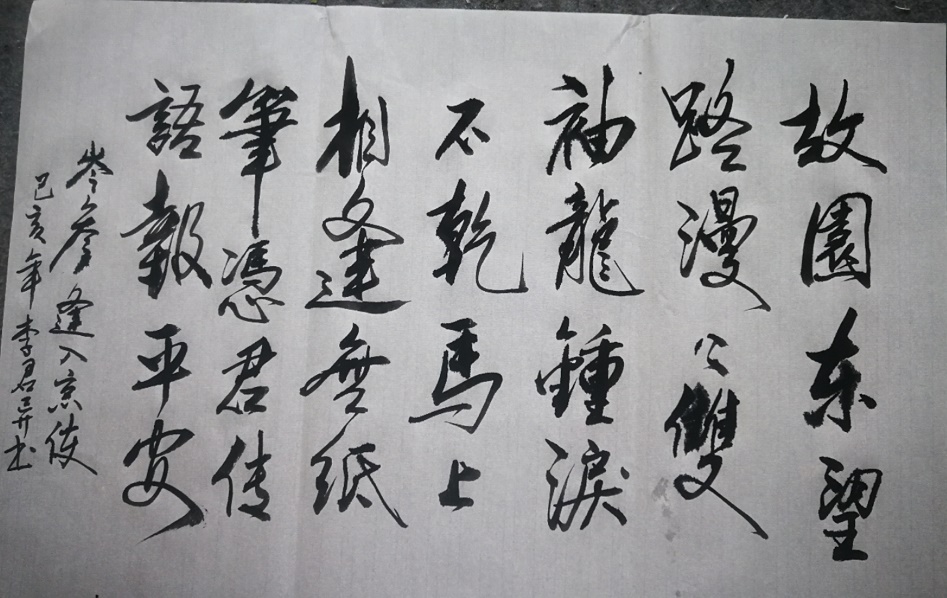 故園东望
路漫〻雙
袖龍鍾淚
不乾馬上
相逢無纸
筆憑君传
語報平安
岑參逢入京使
己亥年李君异书